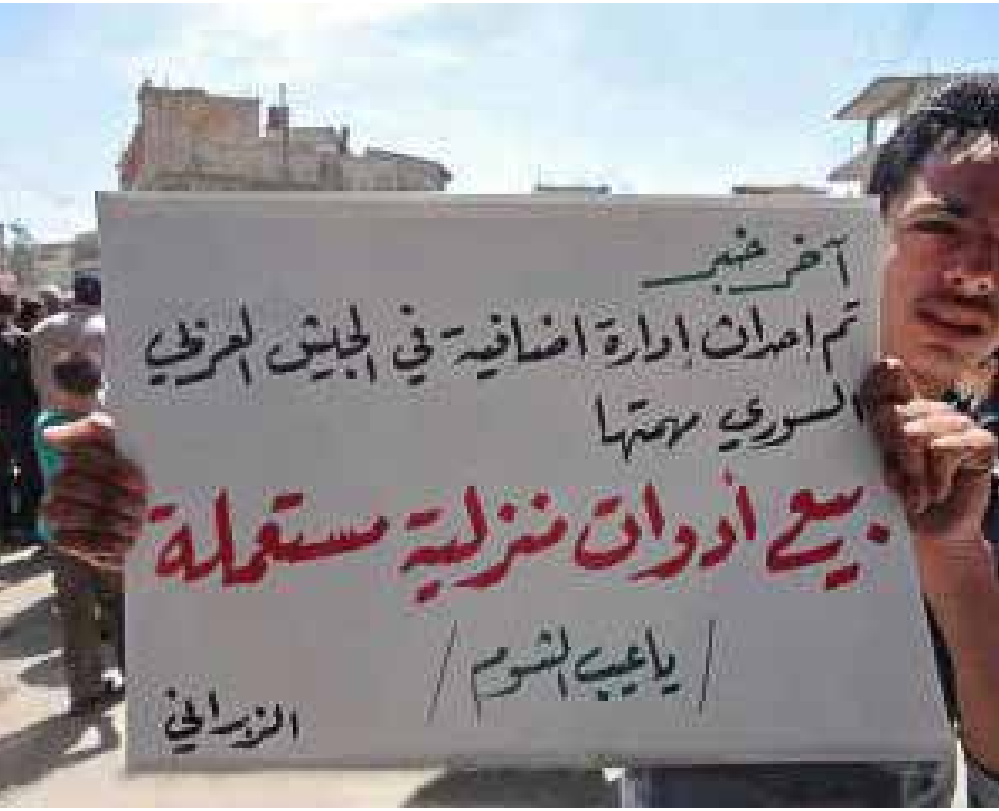 آخر خبر
تم احداث إدارة اضافية في الجيش العرظي
السوري مهمتها
بيع أدوات منزلية مستعملة
/ ياعيب الشوم /